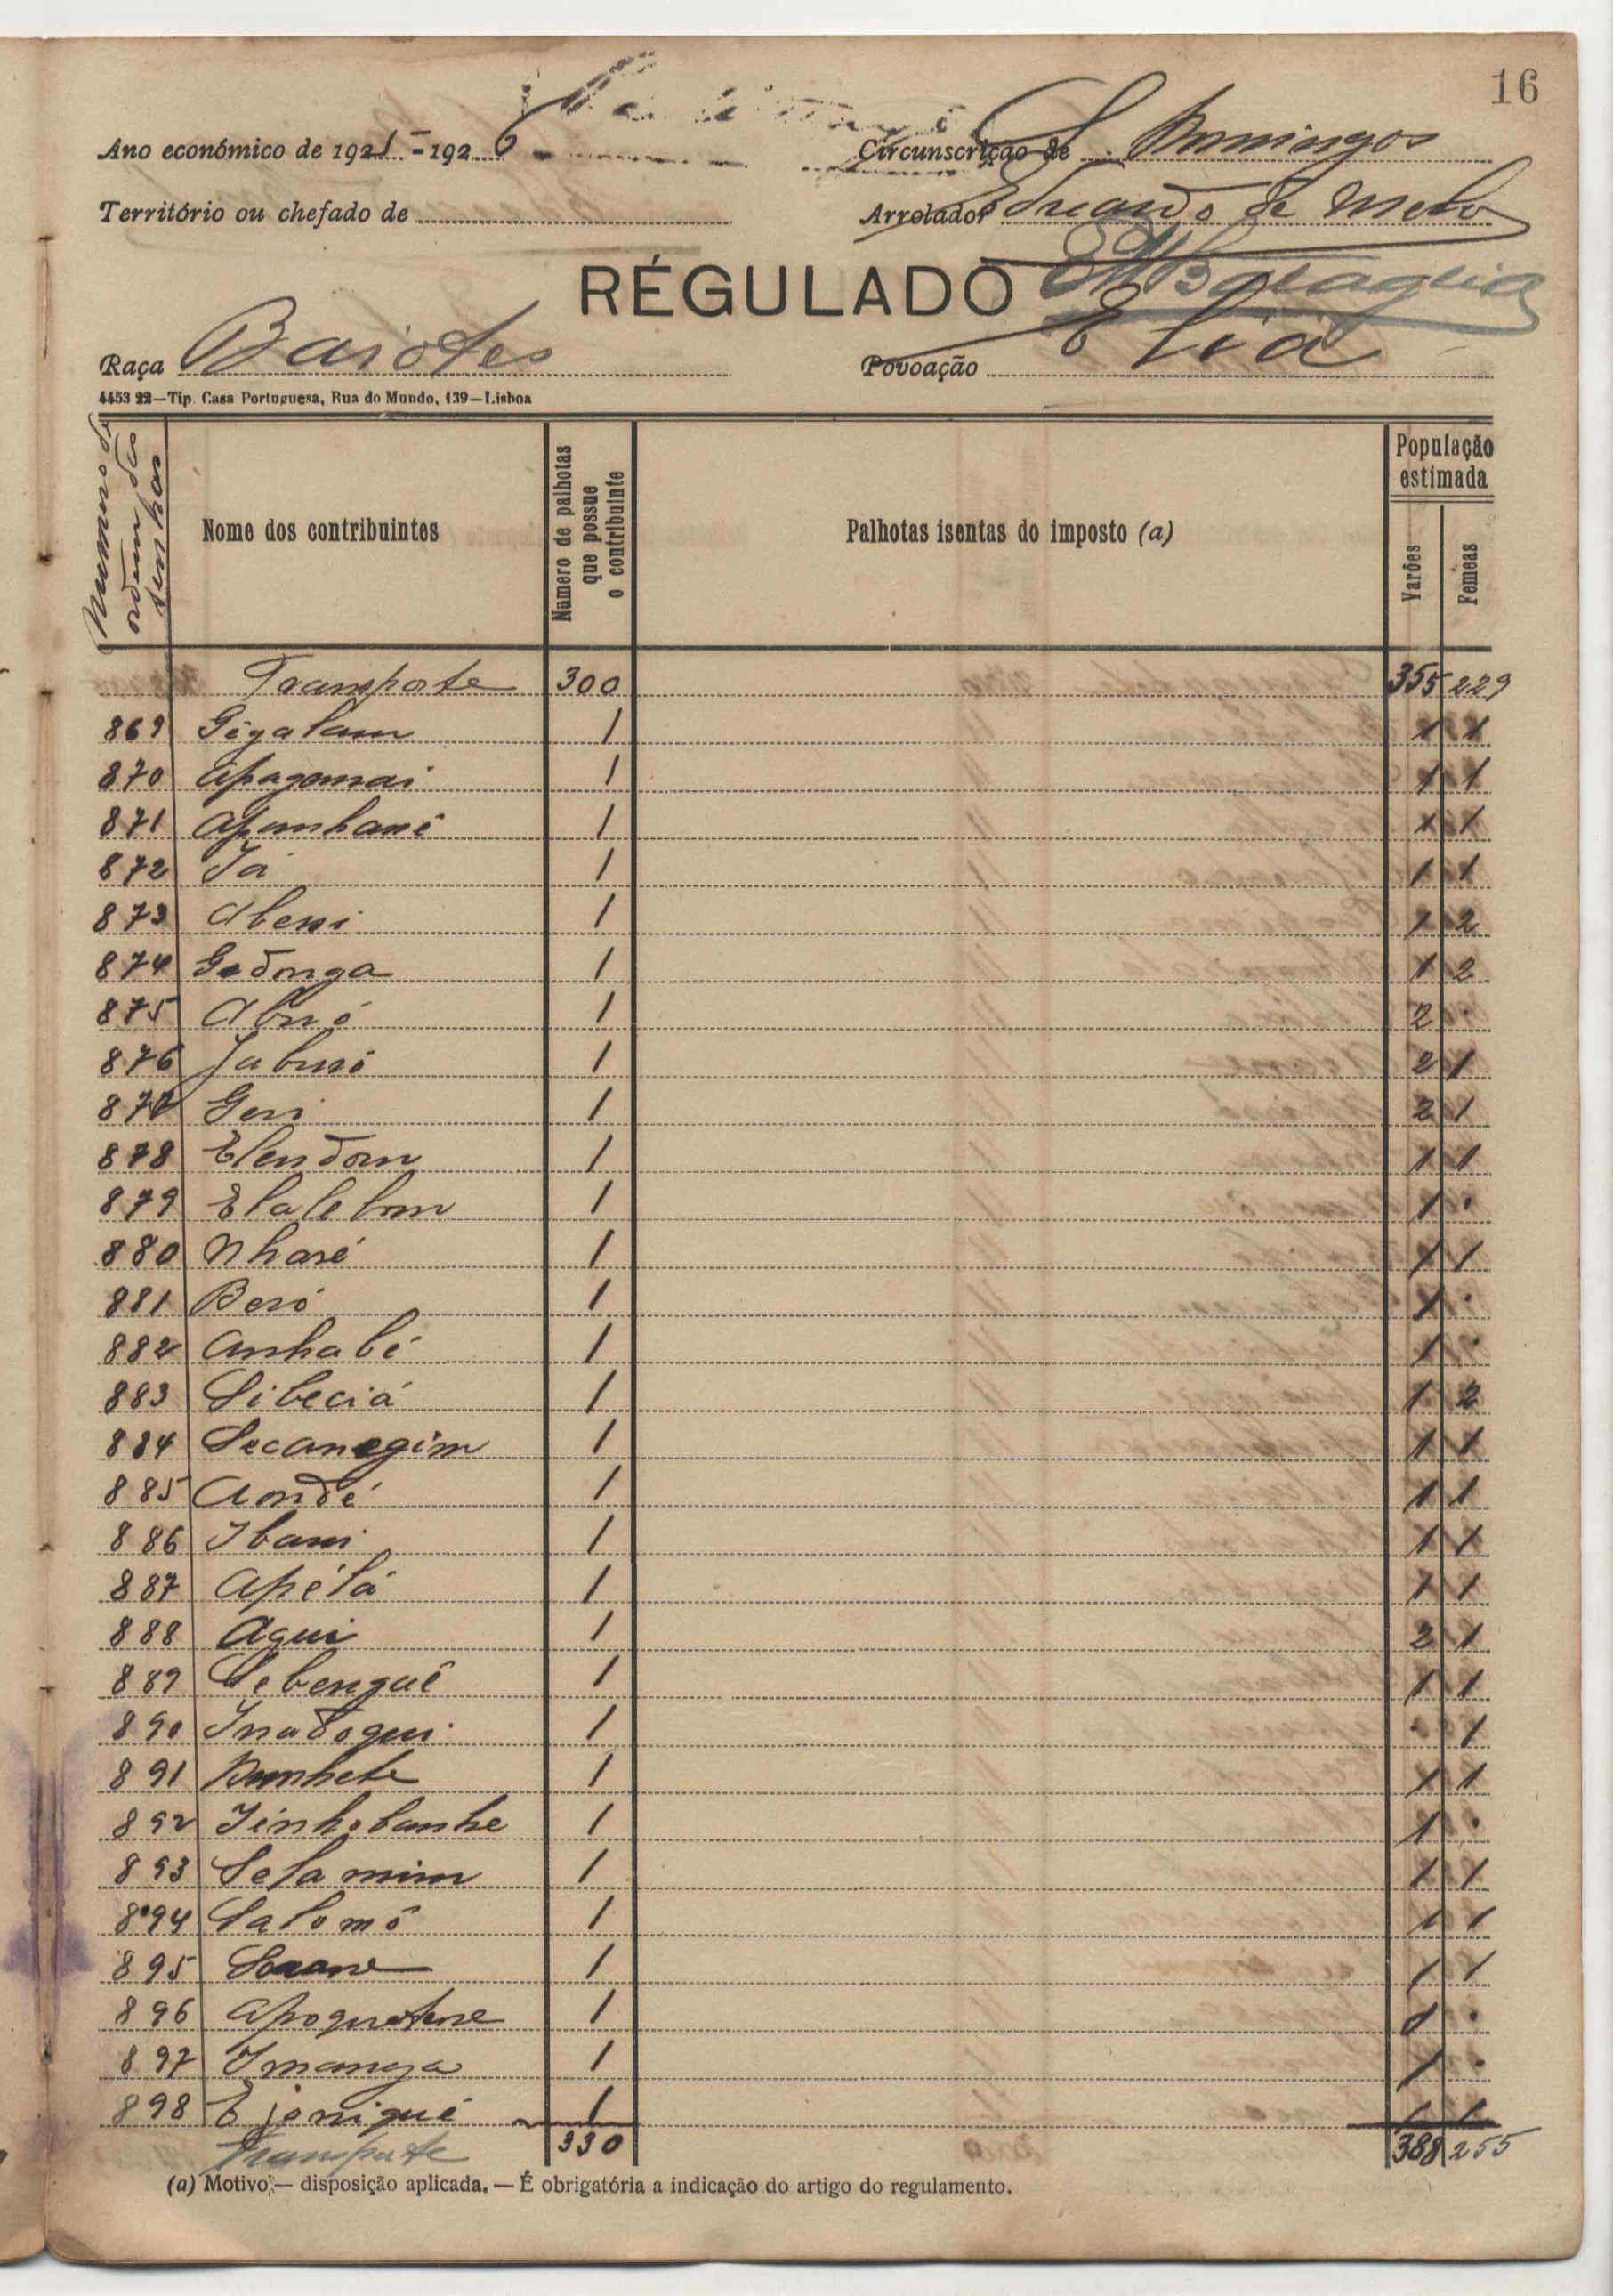 16
Ano económico de 1925-1926 Circunscrição de S. Domingos
Território ou chefado de Arrolador Eduardo de Melo
RÉGULADO
Raça Baiotes Povoação Eliá
4453 22—Tip. Casa Portuguesa, Rua do Mundo, 139—Lisboa
Numero de ordem das senhas
Nome dos contribuintes
Número de palhotas que possue o contribuinte
Palhotas isentas do imposto (a)
População estimada
Varões Fêmeas
Transporte 300 355 229
869 Gigalam 1 1 1
870 Apagomai 1 1 1
871 Apunhané 1 1 1
872 Já 1 1 1
873 Abessi 1 1 2
874 Gadonga 1 1 2
875 Abnó 1 2 .
876 Jabusó 1 2 1
877 Geri 1 2 1
878 Elendom 1 1 1
879 Elalebom 1 1 .
880 Nharé 1 1 1
881 Beró 1 1 .
882 Anhabé 1 1 .
883 Sibeciá 1 1 2
884 Secanegim 1 1 1
885 Aondé 1 1 1
886 Ibani 1 1 1
887 Apélá 1 1 1
888 Aqui 1 2 1
889 Sebengué 1 1 1
890 Inadogui 1 . 1
891 Bunhete 1 1 1
892 Jinhobanhe 1 1 .
893 Selamim 1 1 1
894 Salomó 1 1 1
895 1 1 1
896 1 1 .
897 Imanga 1 1 .
898 Ejoniqué 1 1 1
Transporte 330 388 255
(a) Motivo — disposição aplicada. — É obrigatória a indicação do artigo do regulamento.